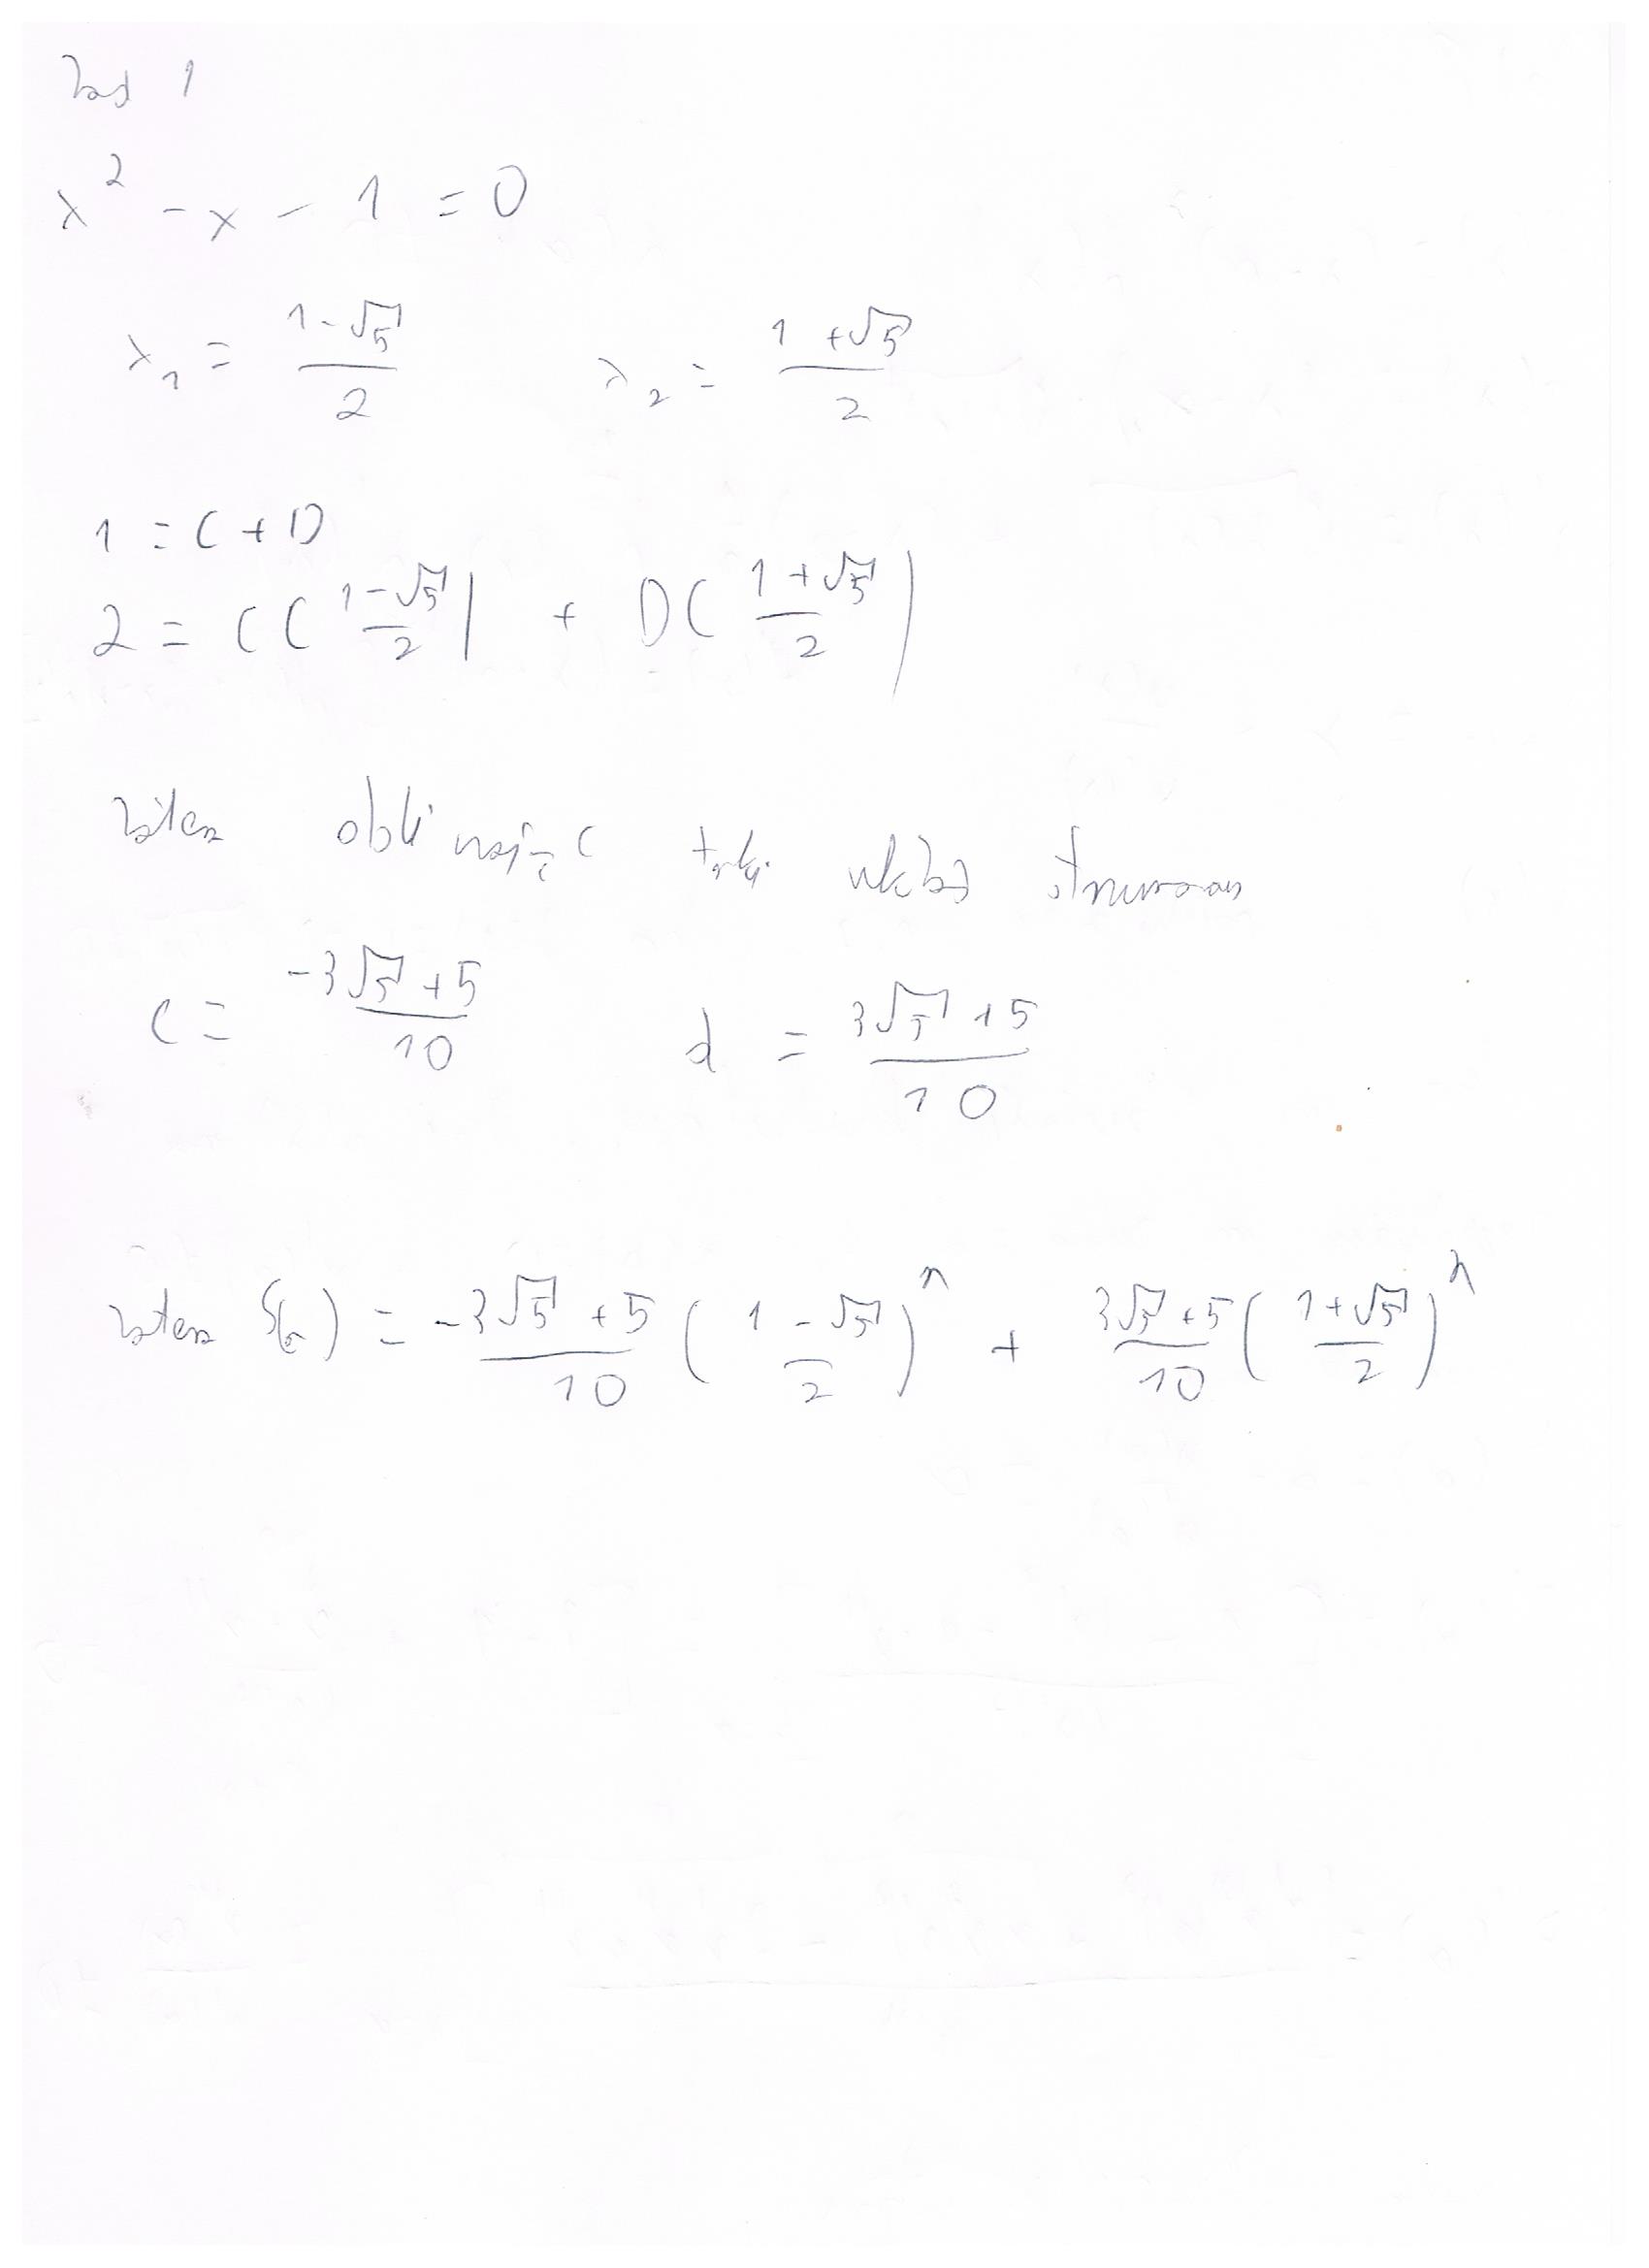 Zad 1
x² - x - 1 = 0
λ₁ = (1-√5)/2    λ₂ = (1+√5)/2
1 = C + D
2 = C((1-√5)/2) + D((1+√5)/2)
zatem obliczając taki układ otrzymam
c = (-3√5 + 5)/10    d = (3√5 + 5)/10
zatem S(n) = (-3√5 + 5)/10 ((1-√5)/2)ⁿ + (3√5 + 5)/10 ((1+√5)/2)ⁿ